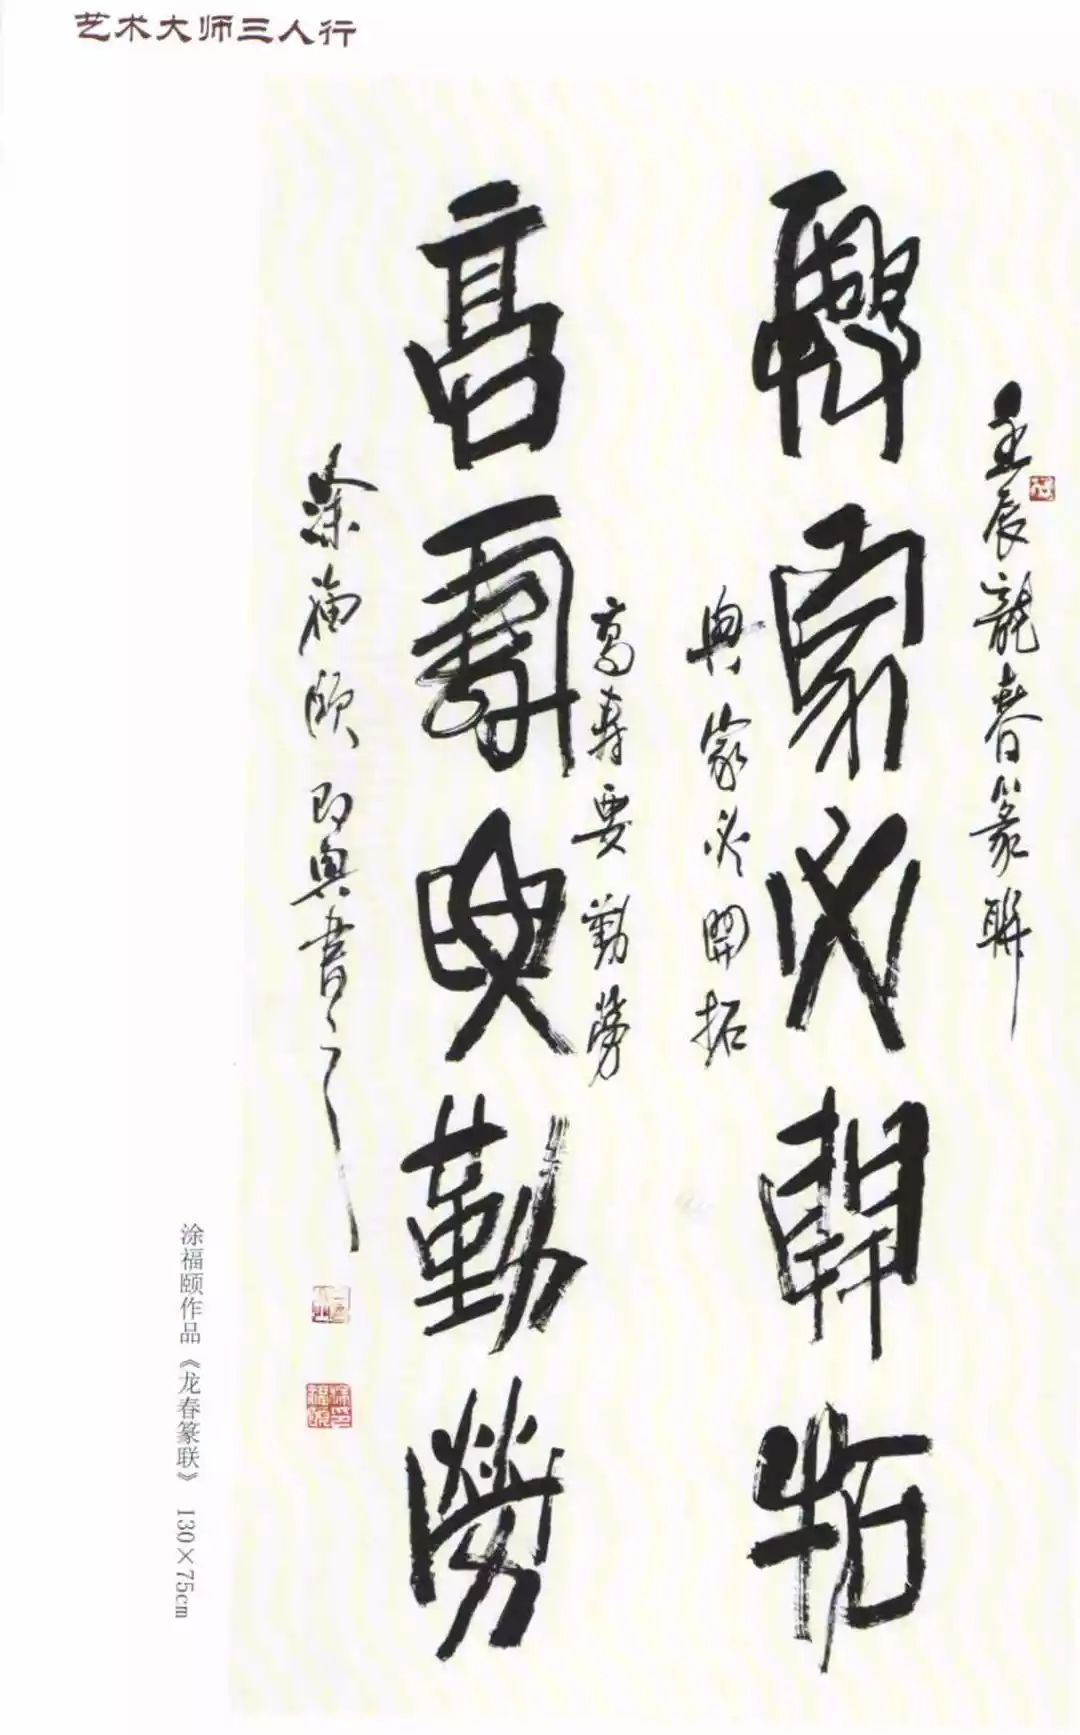 艺术大师三人行
壬辰龍春篆聯
興家必開拓
興家必開拓
高壽要勤勞
高寿要勤勞
涂福颐即興書之
涂福颐作品《龙春篆联》 130×75cm